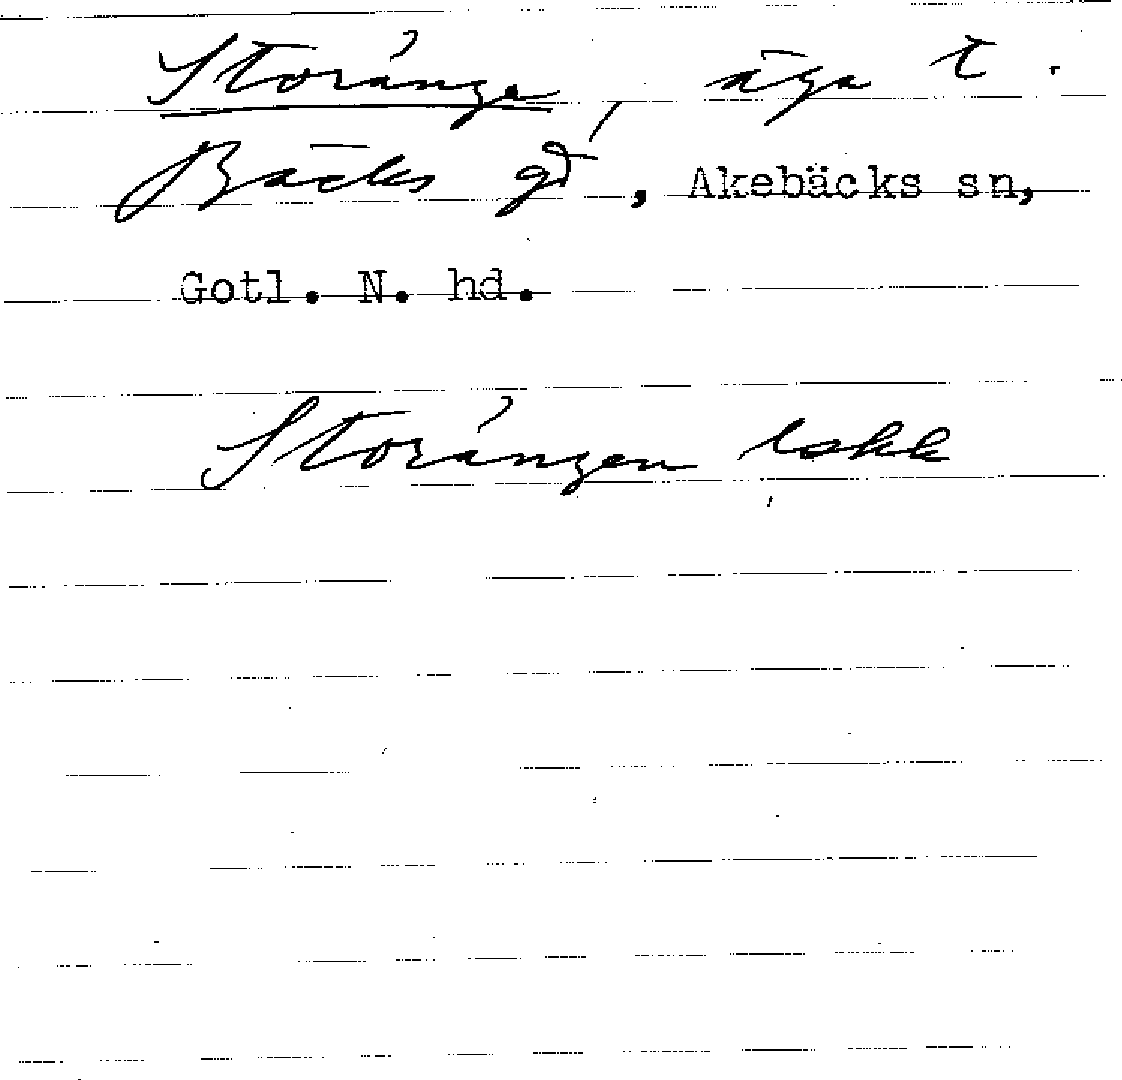 Storänge, äga t.
Bäcks gd, Akebäcks sn,
Gotl. N. hd.
Storängen